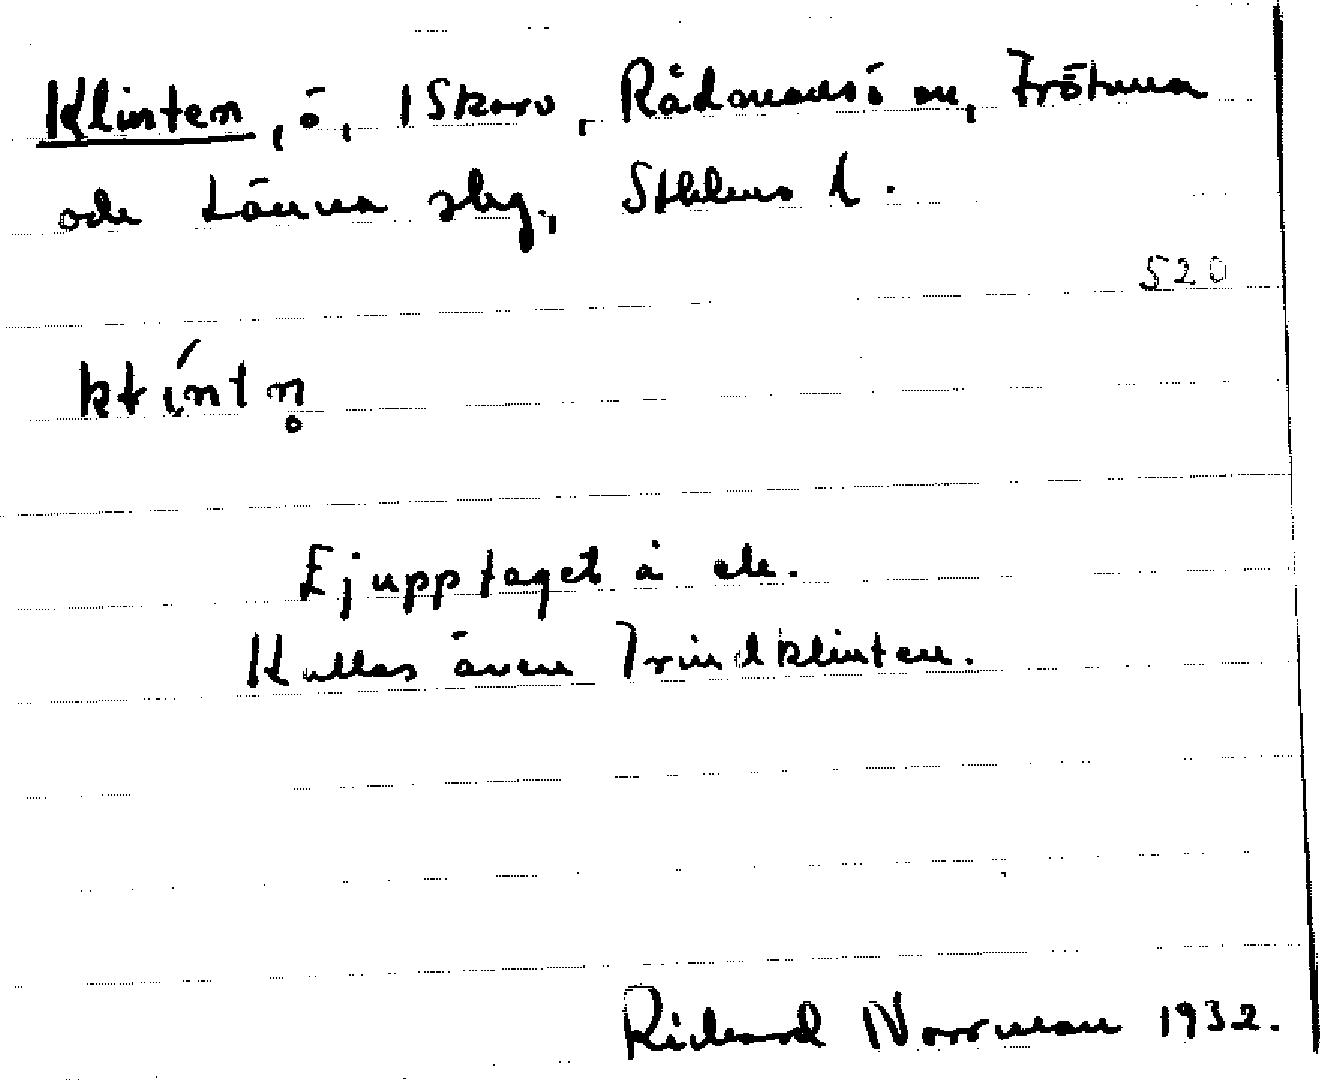 Klinten, ö, i Skovo, Rådmansö sn, Frötuna
och Länna slg., Sthlms l.
520
kłíntn̥
Ej upptaget å ek.
Kallas även Trindklinten.
Richard Norrman 1932.